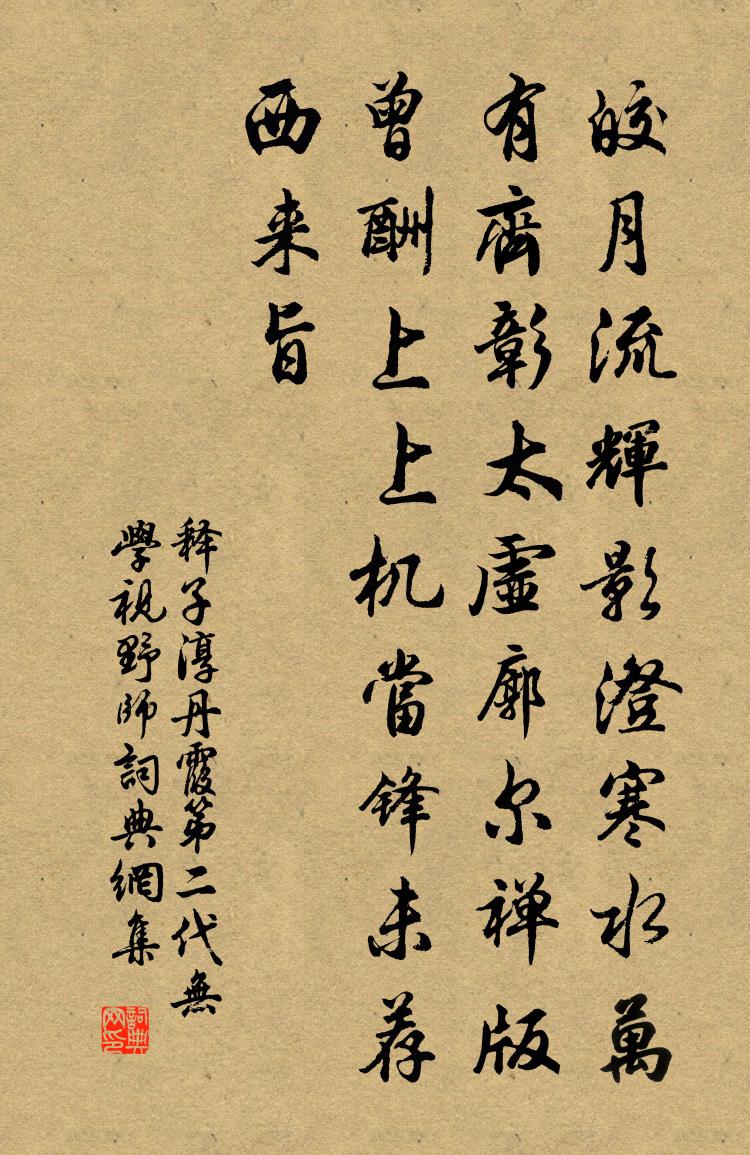 皎月流輝影澄寒水萬
有齊彰太虛廓尔禅版
曾酬上上机當锋未荐
西来旨
释子淳丹霞第二代無
學視野師詞典網集
詞典
网印